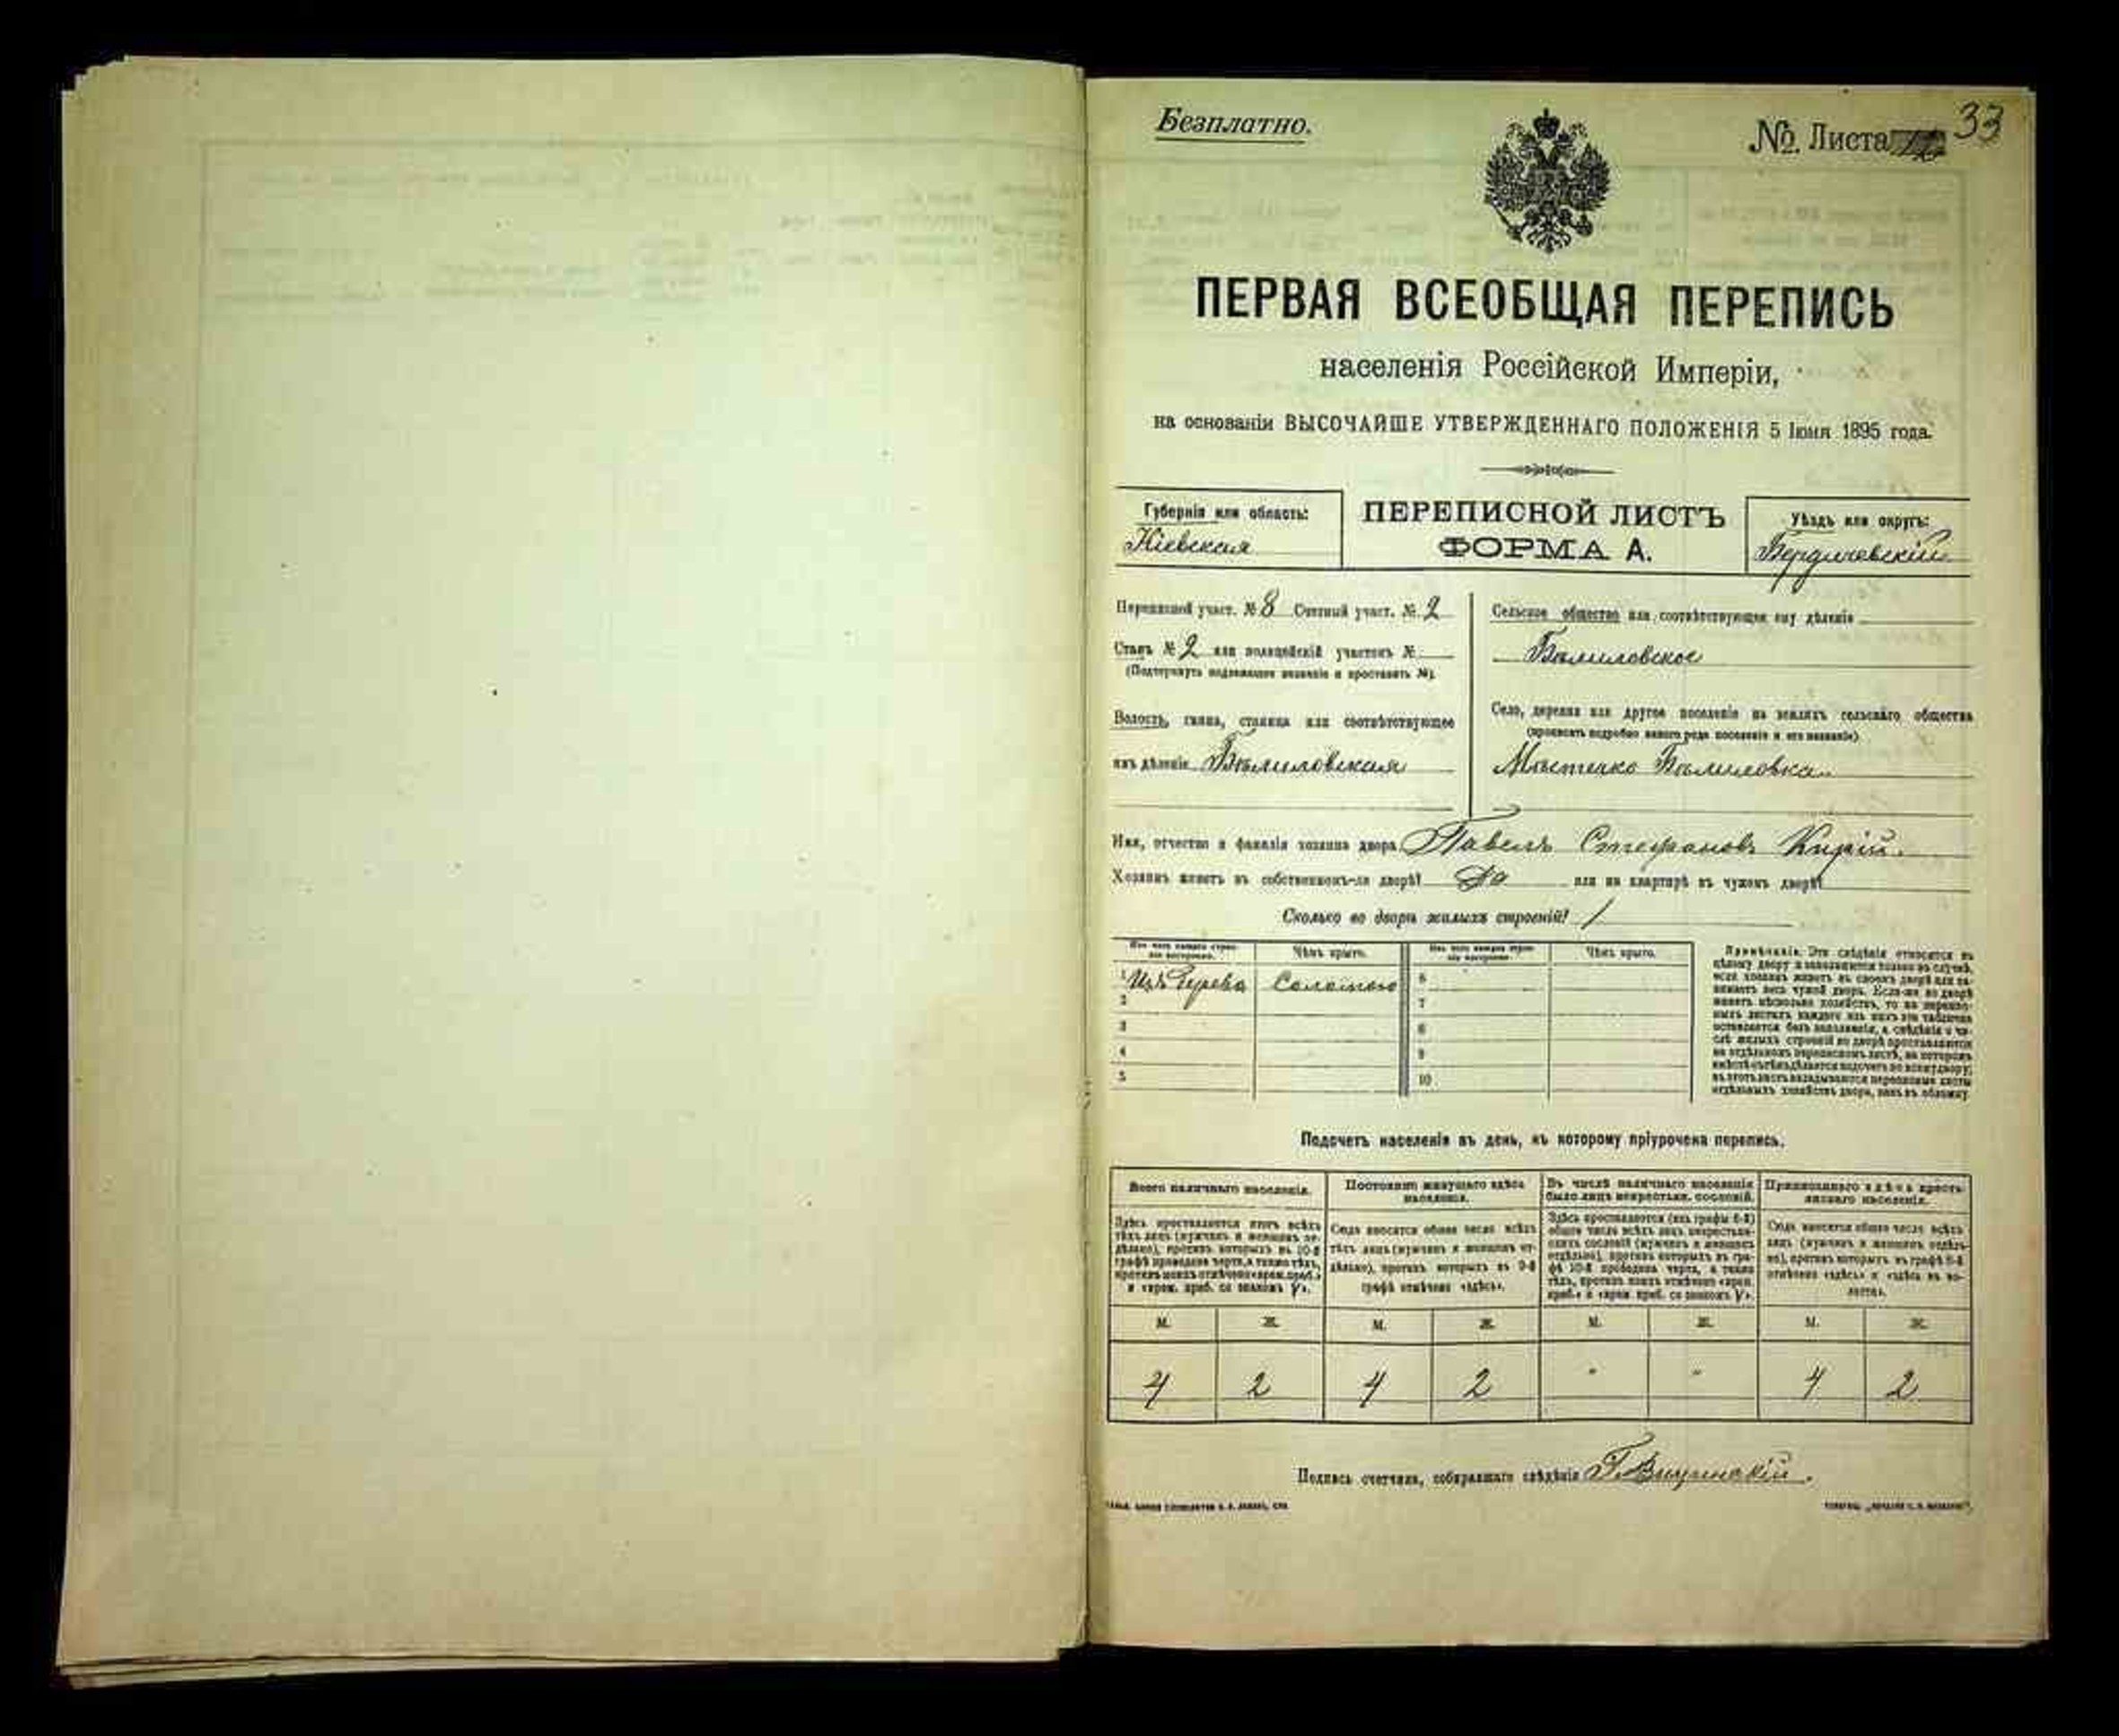 Безплатно.
№ Листа 33
ПЕРВАЯ ВСЕОБЩАЯ ПЕРЕПИСЬ
населенія Россійской Имперіи,
на основаніи ВЫСОЧАЙШЕ УТВЕРЖДЕННАГО ПОЛОЖЕНІЯ 5 Іюня 1895 года.
Губернія или область:
Кіевская
ПЕРЕПИСНОЙ ЛИСТЪ
ФОРМА А.
Уѣздъ или округъ:
Бердичевскій
Переписной участ. № 8 Счетный участ. № 2
Станъ № 2 или полицейскій участокъ №
(Подчеркнуть подлежащее названіе и проставить №).
Волость, гмина, станица или соотвѣтствующее
имъ дѣленіе Бѣлиловская
Сельское общество или соотвѣтствующее ему дѣленіе
Бѣлиловское
Село, деревня или другое поселеніе на земляхъ сельскаго общества
(прописать подробно какого рода поселеніе и его названіе)
Мѣстечко Бѣлиловка
Имя, отчество и фамилія хозяина двора Павелъ Стефановъ Кирій.
Хозяинъ живетъ въ собственномъ-ли дворѣ? Да или на квартирѣ въ чужомъ дворѣ?
Сколько во дворѣ жилыхъ строеній? 1
Изъ чего каждое строеніе построено. Чѣмъ крыто. Изъ чего каждое строеніе построено. Чѣмъ крыто.
1 Изъ дерева Соломою 6
2 7
3 8
4 9
5 10
Примѣчаніе. Эти свѣдѣнія относятся къ
цѣлому двору и заполняются только въ случаѣ,
если хозяинъ живетъ въ своемъ дворѣ или за-
нимаетъ весь чужой дворъ. Если-же во дворѣ
имѣетъ нѣсколько хозяйствъ, то на перепис-
ныхъ листахъ каждаго изъ нихъ эта табличка
оставляется безъ заполненія, а свѣдѣнія о чи-
слѣ жилыхъ строеній во дворѣ проставляются
на отдѣльномъ переписномъ листѣ, на которомъ
вмѣстѣ съ тѣмъ дѣлается подсчетъ по всему двору;
въ этотъ листъ вкладываются переписные листы
отдѣльныхъ хозяйствъ двора, какъ въ обложку.
Подсчетъ населенія въ день, къ которому пріурочена перепись.
Всего наличнаго населенія.
Здѣсь проставляется итогъ всѣхъ
тѣхъ лицъ (мужчинъ и женщинъ от-
дѣльно), противъ которыхъ въ 10-й
графѣ проведена черта, а также тѣхъ,
противъ коихъ отмѣчено «врем. преб.»
и «врем. преб. со знакомъ V».
Постоянно живущаго здѣсь
населенія.
Сюда вносится общее число всѣхъ
тѣхъ лицъ (мужчинъ и женщинъ от-
дѣльно), противъ которыхъ въ 9-й
графѣ отмѣчено «здѣсь».
Въ числѣ наличнаго населенія
было лицъ некрестьян. сословій.
Здѣсь проставляется (изъ графы 6-й)
общее число всѣхъ лицъ некрестьян-
скихъ сословій (мужчинъ и женщинъ
отдѣльно), противъ которыхъ въ гра-
фѣ 10-й проведена черта, а также
тѣхъ, противъ коихъ отмѣчено «врем.
преб.» и «врем. преб. со знакомъ V».
Приписаннаго здѣсь кресть-
янскаго населенія.
Сюда вносится общее число всѣхъ
лицъ (мужчинъ и женщинъ отдѣль-
но), противъ которыхъ въ графѣ 8-й
отмѣчено «здѣсь» и «здѣсь въ во-
лости».
М. Ж. М. Ж. М. Ж. М. Ж.
4 2 4 2 " " 4 2
Подпись счетчика, собиравшаго свѣдѣнія